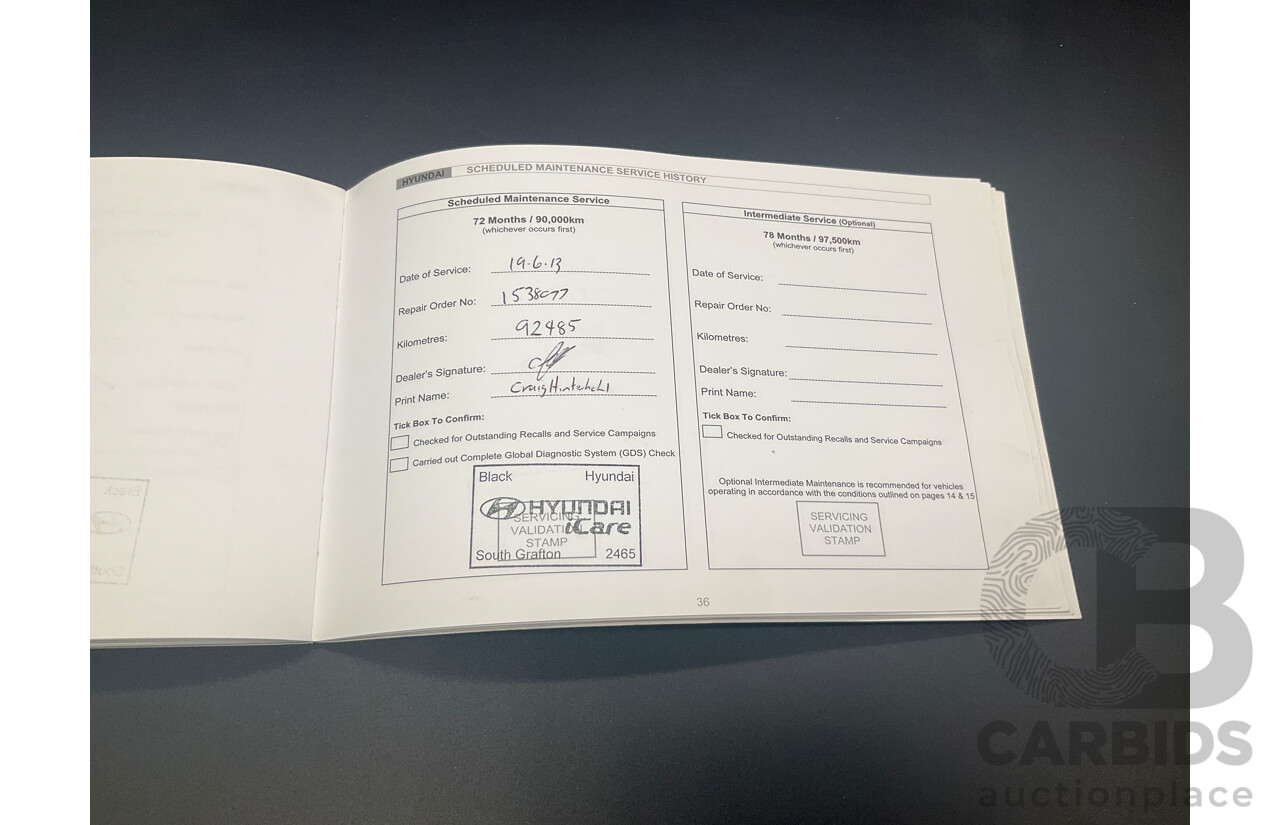 HYUNDAI SCHEDULED MAINTENANCE SERVICE HISTORY
Scheduled Maintenance Service
72 Months / 90,000km
(whichever occurs first)
Date of Service: 19.6.13
Repair Order No: 1538077
Kilometres: 92485
Dealer's Signature:
Print Name: Craig
Tick Box To Confirm:
Checked for Outstanding Recalls and Service Campaigns
Carried out Complete Global Diagnostic System (GDS) Check
Black Hyundai
HYUNDAI
iCare
SERVICING
VALIDATION
STAMP
South Grafton 2465
Intermediate Service (Optional)
78 Months / 97,500km
(whichever occurs first)
Date of Service:
Repair Order No:
Kilometres:
Dealer's Signature:
Print Name:
Tick Box To Confirm:
Checked for Outstanding Recalls and Service Campaigns
Optional Intermediate Maintenance is recommended for vehicles
operating in accordance with the conditions outlined on pages 14 & 15
SERVICING
VALIDATION
STAMP
36
CB
CARBIDS
auctionplace